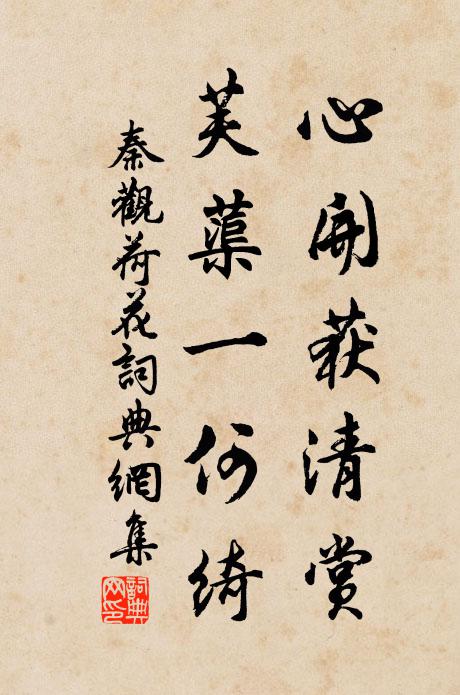 心開获清賞
芙蕖一何綺
秦觀荷花詞典網集
詞典網印